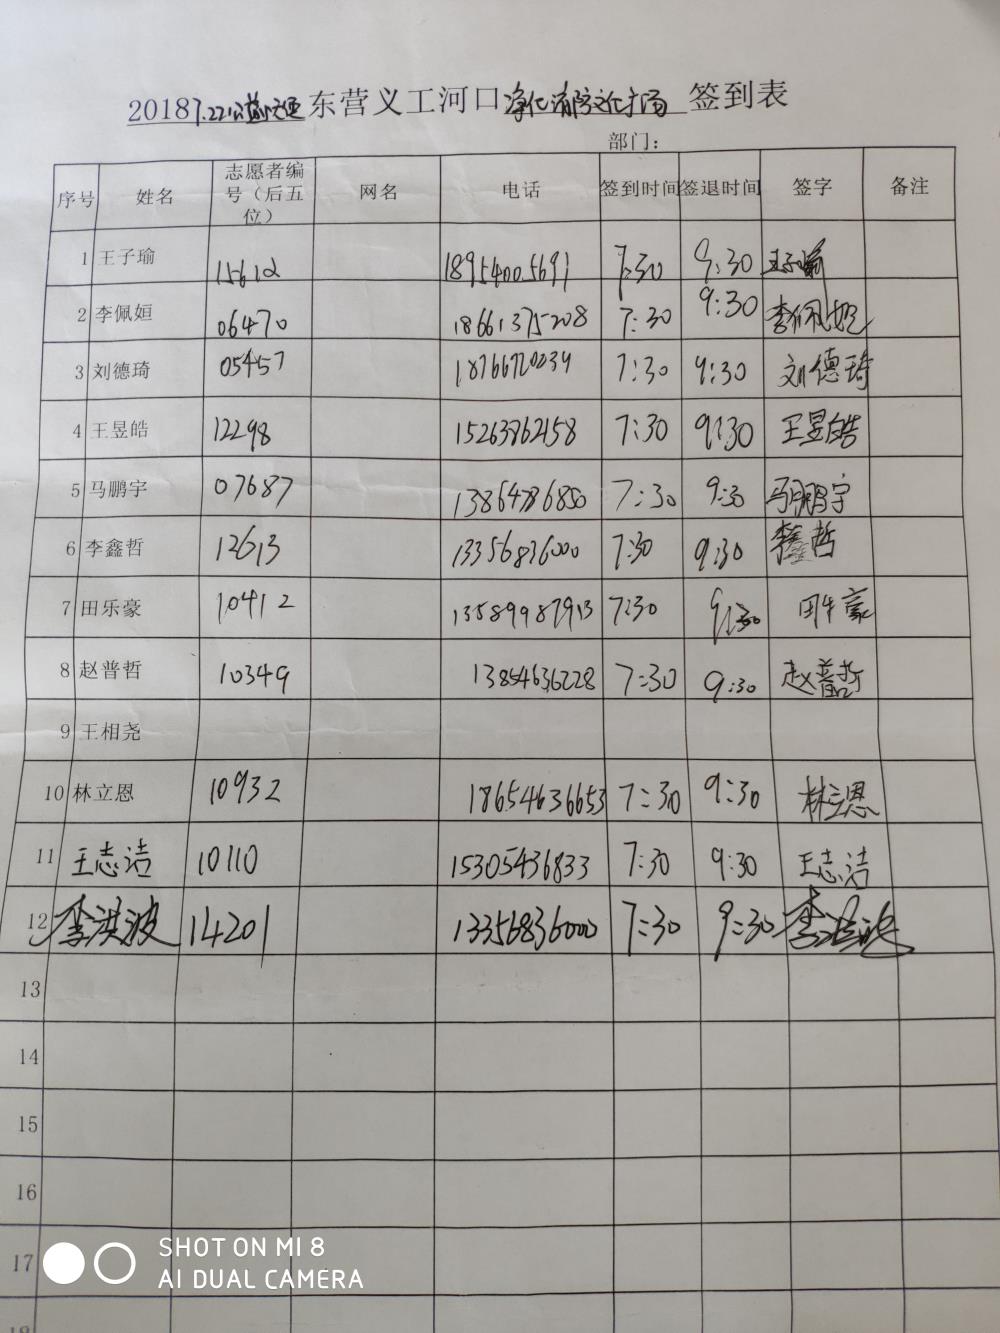 2018 7.22公益 东营义工河口净化消防文化广场 签到表
部门：
序号 姓名 志愿者编号（后五位） 网名 电话 签到时间 签退时间 签字 备注
1 王子瑜 15612 18954005691 7:30 9:30 王子瑜
2 李佩姮 06470 18661375208 7:30 9:30 李佩姮
3 刘德琦 05457 18766720239 7:30 9:30 刘德琦
4 王昱皓 12298 15263862158 7:30 9:30 王昱皓
5 马鹏宇 07687 13864786850 7:30 9:30 马鹏宇
6 李鑫哲 12613 13356836000 7:30 9:30 李鑫哲
7 田乐豪 10412 13589987913 7:30 9:30 田乐豪
8 赵普哲 10349 13854636228 7:30 9:30 赵普哲
9 王相尧
10 林立恩 10932 18654636653 7:30 9:30 林立恩
11 王志洁 10110 15305436833 7:30 9:30 王志洁
12 李洪波 14201 13356836000 7:30 9:30 李洪波
13
14
15
16
17
SHOT ON MI 8
AI DUAL CAMERA